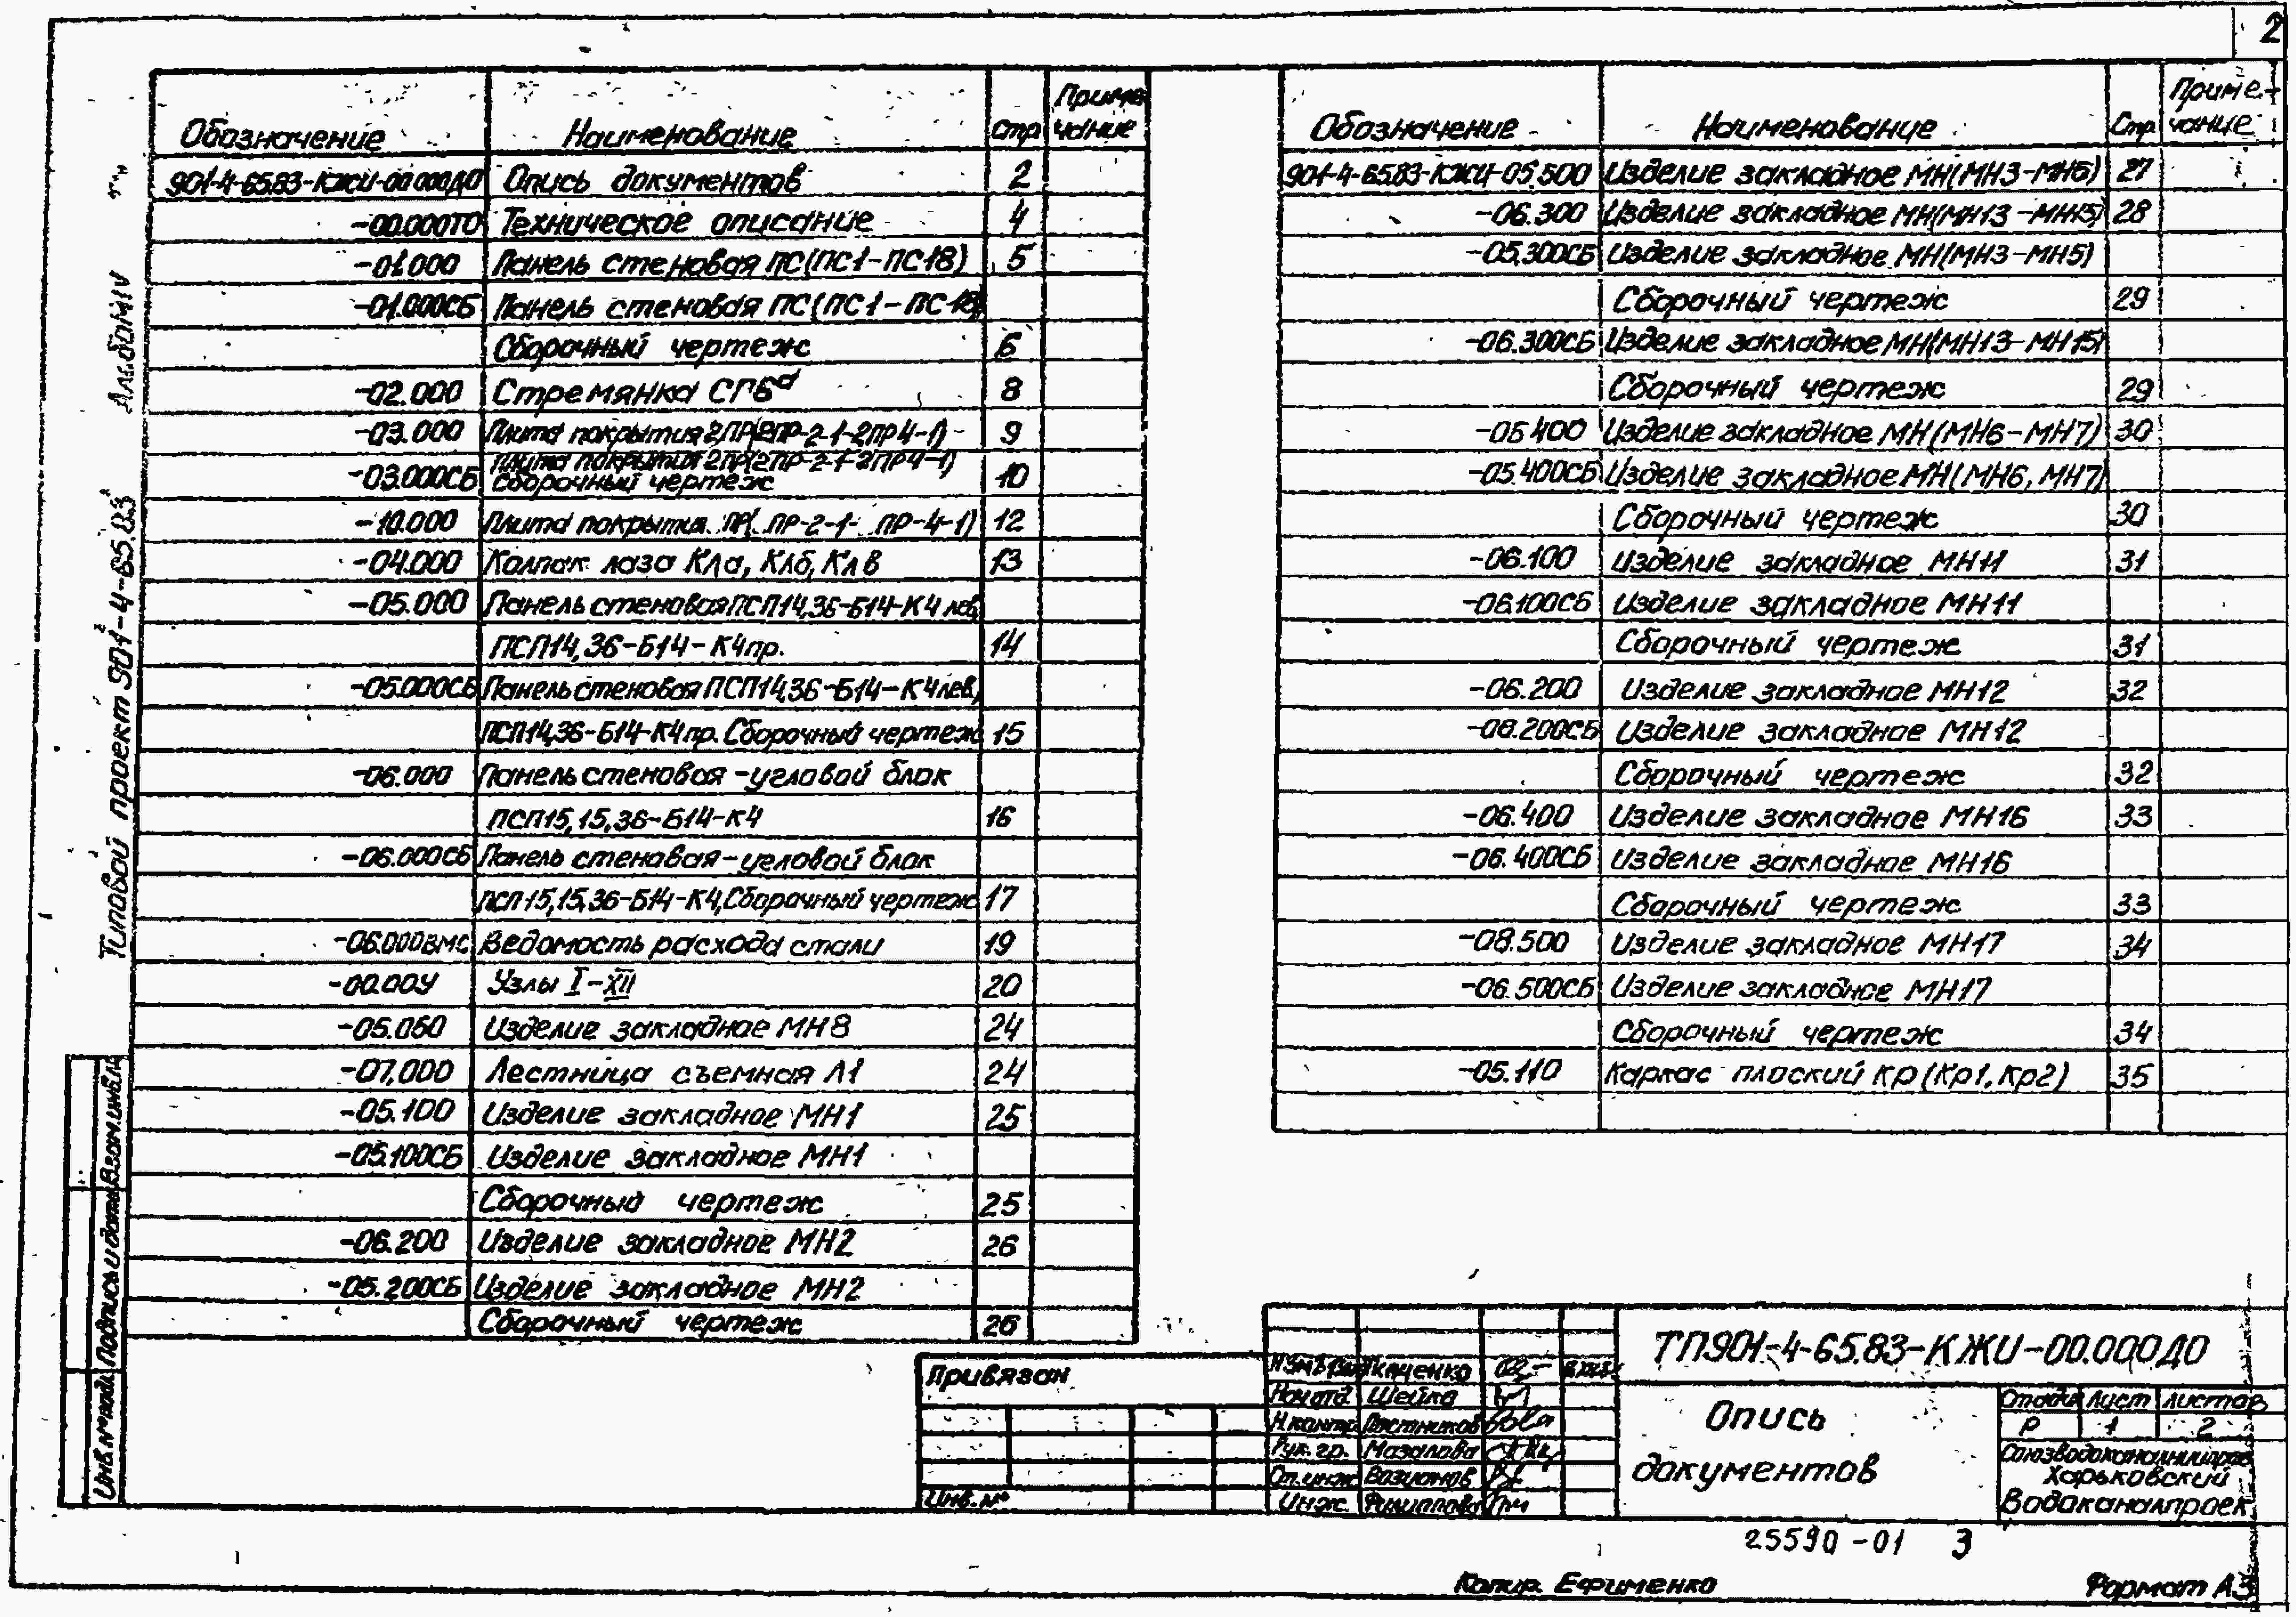 2
Обозначение Наименование Стр Приме чание
901-4-65.83-КЖИ-00.000ДО Опись документов 2
-00.000ТО Техническое описание 4
-01.000 Панель стеновая ПС(ПС1-ПС18) 5
-01.000СБ Панель стеновая ПС(ПС1-ПС-18)
Сборочный чертеж 6
-02.000 Стремянка СГ6а 8
-03.000 Плита покрытия 2ПР(2ПР-2-1-2ПР4-1) 9
-03.000СБ Плита покрытия 2ПР(2ПР-2-1-2ПР4-1)
Сборочный чертеж 10
-10.000 Плита покрытия ПР( ПР-2-1- ПР-4-1) 12
-04.000 Колпак лаза Кла, Клб, Клв 13
-05.000 Панель стеновая ПСП14,36-Б14-К4 лев,
ПСП14,36-Б14-К4пр. 14
-05.000СБ Панель стеновая ПСП14,36-Б14-К4лев,
ПСП14,36-Б14-К4пр. Сборочный чертеж 15
-06.000 Панель стеновая-угловой блок
ПСП15,15,36-Б14-К4 16
-06.000СБ Панель стеновая-угловой блок
ПСП15,15,36-Б14-К4, Сборочный чертеж 17
-06.000ВМС Ведомость расхода стали 19
-00.00У Узлы I-XII 20
-05.050 Изделие закладное МН8 24
-07.000 Лестница съемная Л1 24
-05.100 Изделие закладное МН1 25
-05.100СБ Изделие закладное МН1
Сборочный чертеж 25
-06.200 Изделие закладное МН2 26
-05.200СБ Изделие закладное МН2
Сборочный чертеж 26
Обозначение Наименование Стр. Приме-чание
901-4-65.83-КЖИ-05.500 Изделие закладное МН(МН3-МН5) 27
-06.300 Изделие закладное МН(МН13-МН15) 28
-05.300СБ Изделие закладное МН(МН3-МН5)
Сборочный чертеж 29
-06.300СБ Изделие закладное МН(МН13-МН15)
Сборочный чертеж 29
-05.400 Изделие закладное МН(МН6-МН7) 30
-05.400СБ Изделие закладное МН(МН6, МН7)
Сборочный чертеж 30
-06.100 Изделие закладное МН11 31
-06.100СБ Изделие закладное МН11
Сборочный чертеж 31
-06.200 Изделие закладное МН12 32
-06.200СБ Изделие закладное МН12
Сборочный чертеж 32
-06.400 Изделие закладное МН16 33
-06.400СБ Изделие закладное МН16
Сборочный чертеж 33
-08.500 Изделие закладное МН17 34
-06.500СБ Изделие закладное МН17
Сборочный чертеж 34
-05.110 Каркас плоский КР(Кр1, Кр2) 35
Типовой проект 901-4-65.83 Альбом IV
Взам.инв.№
Подпись и дата
Инв.№ подл.
Привязан
Инв.№
Ткаченко
Нач.отд. Шейко
Н.контр. Постников
Рук.гр. Мазалова
Ст.инж
Инж. Филиппова
ТП901-4-65.83-КЖИ-00.000ДО
Опись
документов
Стадия Лист Листов
Р 1 2
Союзводоканалниипроект
Харьковский
Водоканалпроект
25590-01 3
Копир. Ефименко
Формат А3